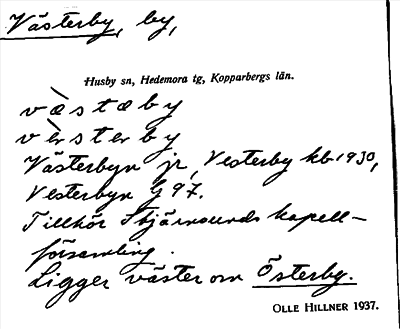 Västerby, by,
Husby sn, Hedemora tg, Kopparbergs län.
væ̀stæby
vèrsterby
Västerbyn jr, Vesterby kb 1930,
Vesterbyn G 97.
Tillhör Stjärnsunds kapell-
församling.
Ligger väster om Österby.
OLLE HILLNER 1937.